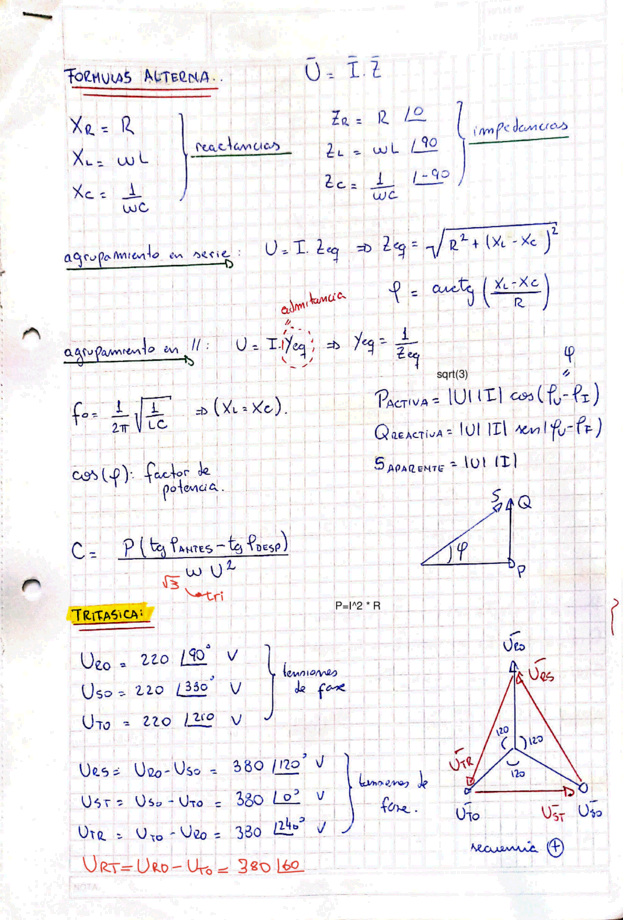 FORMULAS ALTERNA..
Ū = Ī.Z̄
X_R = R
X_L = ωL
X_C = 1/ωC
reactancias
Z_R = R ∠0
Z_L = ωL ∠90
Z_C = 1/ωC ∠-90
impedancias
agrupamiento en serie: U = I. Zeq ⇒ Zeq = √(R² + (X_L - X_C)²)
φ = arctg (X_L - X_C / R)
admitancia
agrupamiento en //: U = I.Yeq ⇒ Yeq = 1/Zeq
fo = 1/2π √(1/LC) ⇒ (X_L = X_C).
cos(φ): factor de
potencia.
φ
=
sqrt(3)
P_ACTIVA = |U| |I| cos(φ_U - φ_I)
Q_REACTIVA = |U| |I| sen(φ_U - φ_F)
S_APARENTE = |U| |I|
S
Q
φ
P
C = P(tg φ_ANTES - tg φ_DESP) / ω U²
√3 tri
P=I^2 * R
TRIFASICA:
U_RO = 220 ∠90° V
U_SO = 220 ∠330° V
U_TO = 220 ∠210 V
tensiones
de fase
U_RS = U_RO - U_SO = 380 ∠120° V
U_ST = U_SO - U_TO = 380 ∠0° V
U_TR = U_TO - U_RO = 380 ∠240° V
tensiones de
fase.
U_RT = U_RO - U_TO = 380 ∠60
Ū_RO
Ū_RS
120
120
120
Ū_TR
Ū_TO
Ū_ST
Ū_SO
secuencia (+)
NOTA